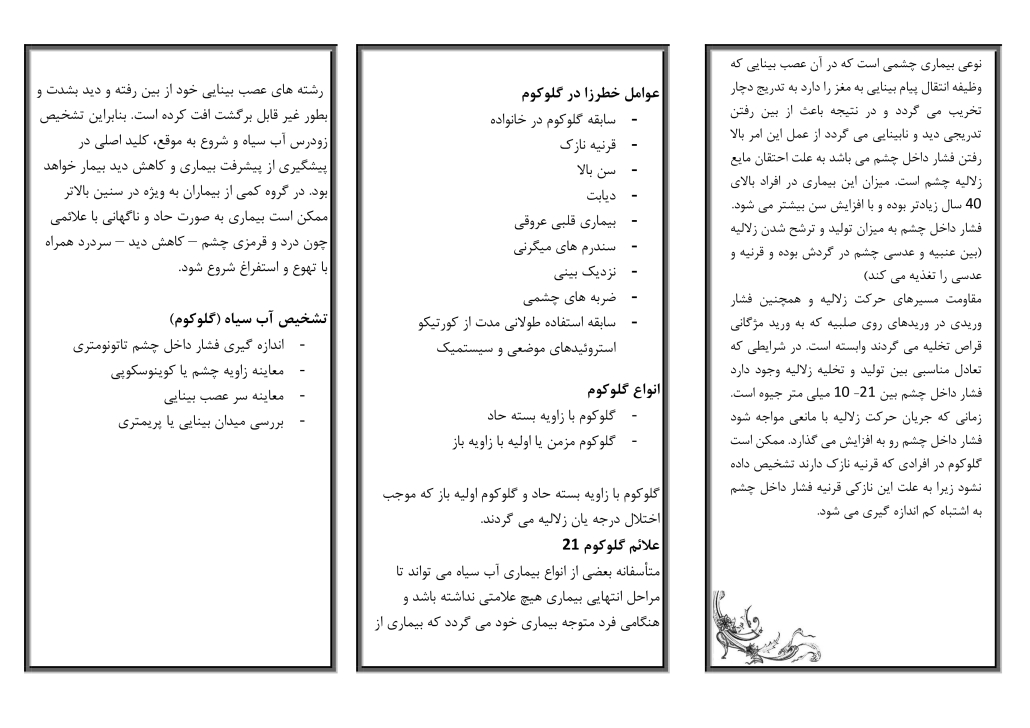 نوعی بیماری چشمی است که در آن عصب بینایی که
وظیفه انتقال پیام بینایی به مغز را دارد به تدریج دچار
تخریب می گردد و در نتیجه باعث از بین رفتن
تدریجی دید و نابینایی می گردد از عمل این امر بالا
رفتن فشار داخل چشم می باشد به علت احتقان مایع
زلالیه چشم است. میزان این بیماری در افراد بالای
40 سال زیادتر بوده و با افزایش سن بیشتر می شود.
فشار داخل چشم به میزان تولید و ترشح شدن زلالیه
(بین عنبیه و عدسی چشم در گردش بوده و قرنیه و
عدسی را تغذیه می کند)
مقاومت مسیرهای حرکت زلالیه و همچنین فشار
وریدی در وریدهای روی صلبیه که به ورید مژگانی
قراص تخلیه می گردند وابسته است. در شرایطی که
تعادل مناسبی بین تولید و تخلیه زلالیه وجود دارد
فشار داخل چشم بین 21- 10 میلی متر جیوه است.
زمانی که جریان حرکت زلالیه با مانعی مواجه شود
فشار داخل چشم رو به افزایش می گذارد. ممکن است
گلوکوم در افرادی که قرنیه نازک دارند تشخیص داده
نشود زیرا به علت این نازکی قرنیه فشار داخل چشم
به اشتباه کم اندازه گیری می شود.
عوامل خطرزا در گلوکوم
- سابقه گلوکوم در خانواده
- قرنیه نازک
- سن بالا
- دیابت
- بیماری قلبی عروقی
- سندرم های میگرنی
- نزدیک بینی
- ضربه های چشمی
- سابقه استفاده طولانی مدت از کورتیکو
استروئیدهای موضعی و سیستمیک
انواع گلوکوم
- گلوکوم با زاویه بسته حاد
- گلوکوم مزمن یا اولیه با زاویه باز
گلوکوم با زاویه بسته حاد و گلوکوم اولیه باز که موجب
اختلال درجه یان زلالیه می گردند.
علائم گلوکوم 21
متأسفانه بعضی از انواع بیماری آب سیاه می تواند تا
مراحل انتهایی بیماری هیچ علامتی نداشته باشد و
هنگامی فرد متوجه بیماری خود می گردد که بیماری از
رشته های عصب بینایی خود از بین رفته و دید بشدت و
بطور غیر قابل برگشت افت کرده است. بنابراین تشخیص
زودرس آب سیاه و شروع به موقع، کلید اصلی در
پیشگیری از پیشرفت بیماری و کاهش دید بیمار خواهد
بود. در گروه کمی از بیماران به ویژه در سنین بالاتر
ممکن است بیماری به صورت حاد و ناگهانی با علائمی
چون درد و قرمزی چشم – کاهش دید – سردرد همراه
با تهوع و استفراغ شروع شود.
تشخیص آب سیاه (گلوکوم)
- اندازه گیری فشار داخل چشم تاتونومتری
- معاینه زاویه چشم یا کوینوسکوپی
- معاینه سر عصب بینایی
- بررسی میدان بینایی یا پریمتری